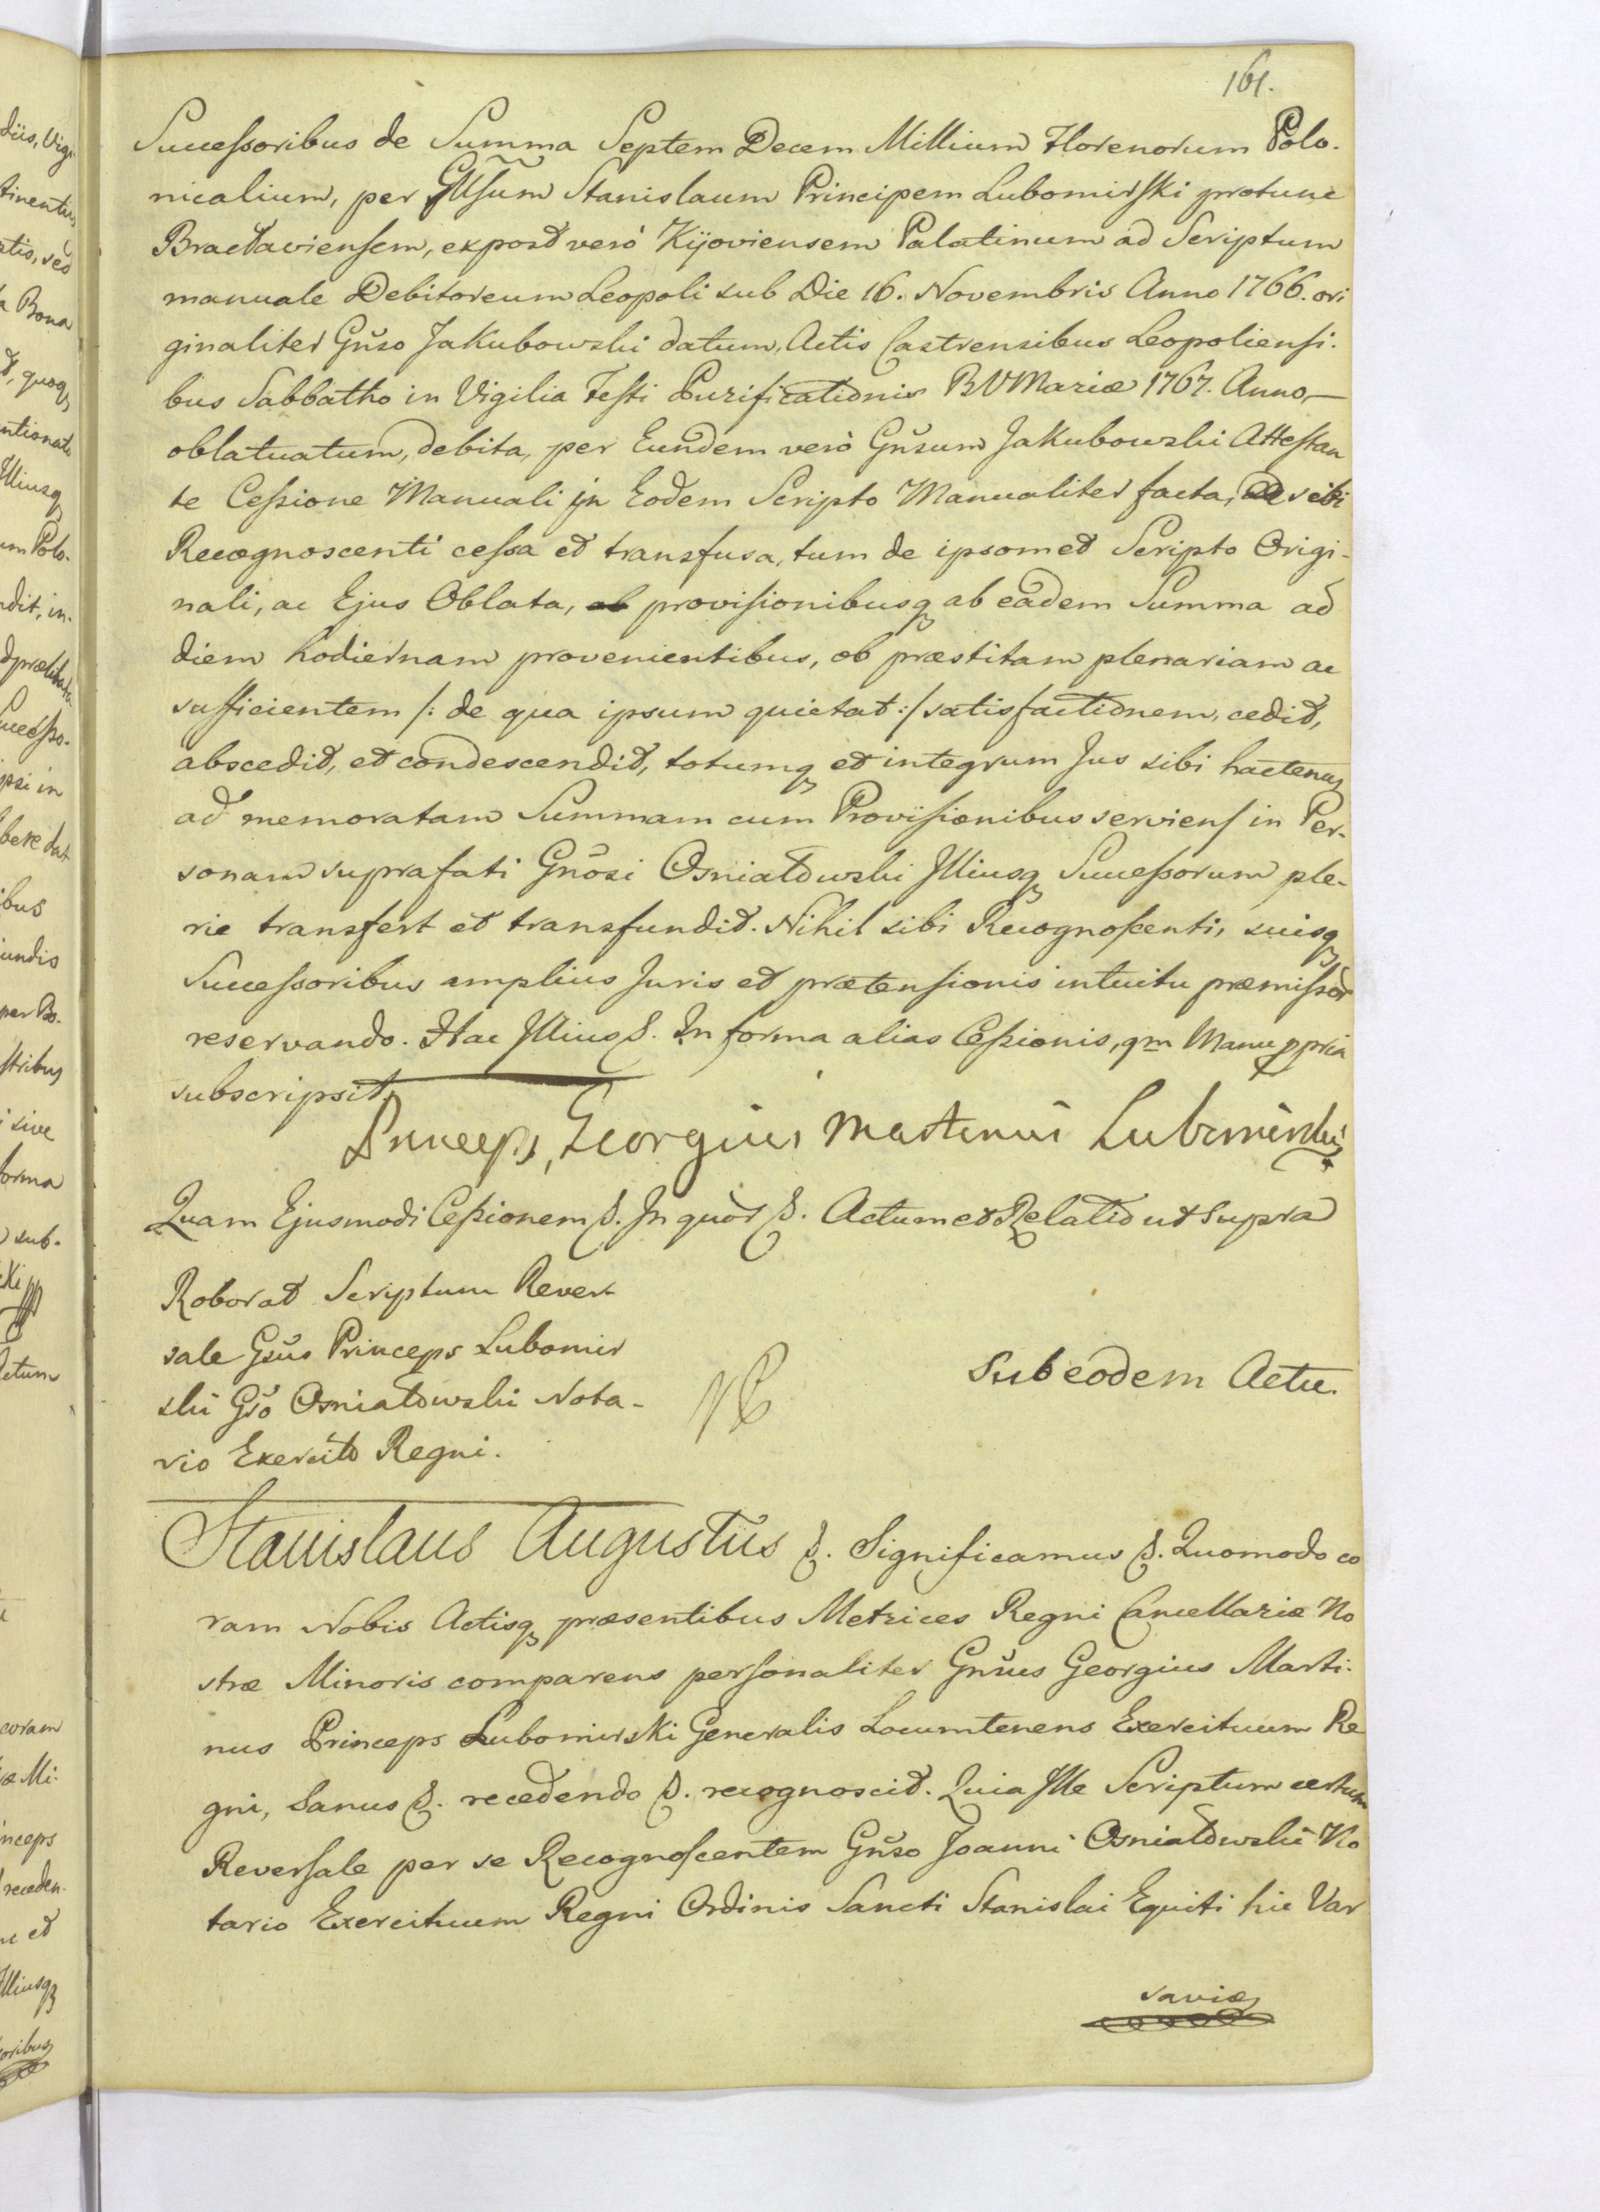 161.
Successoribus de Summa Septem Decem Millium Florenorum Polo-
nicalium, per Gllsum Stanislaum Principem Lubomirski protunc
Braclaviensem, expost verò Kijoviensem Palatinum ad Scriptum
manuale Debitoreum Leopoli sub Die 16. Novembris Anno 1766. ori
ginaliter Gnso Jakubowski datum, Actis Castrensibus Leopoliensi-
bus Sabbatho in Vigilia Festi Purificationis BVMariæ 1767. Anno,
oblatuatum, debita, per Eundem verò Gnsum Jakubowski Attestan
te Cessione Manuali in Eodem Scripto Manualiter facta, sibi
Recognoscenti cessa et transfusa, tum de ipsomet Scripto Origi-
nali, ac Ejus Oblata, provisionibusq ab eadem Summa ad
diem hodiernam provenientibus, ob præstitam plenariam ac
sufficientem /: de qua ipsum quietat :/ satisfactionem, cedit,
abscedit, et condescendit, totumq et integrum Jus sibi hactenus
ad memoratam Summam cum Provisionibus serviens in Per-
sonam suprafati Gnosi Osniałowski Illiusq Successorum ple-
rie transfert et transfundit. Nihil sibi Recognoscenti, suisq
Successoribus amplius Juris et prætensionis intuitu præmissor
reservando. Hac Illius &. In forma alias Cessionis, qm Manu ppria
subscripsit.
Princeps, Georgius Martinus Lubomirski
Quam Ejusmodi Cessionem &. In quor &. Actum et Relatio ut Supra
Roborat Scriptum Rever-
sale Gsus Princeps Lubomir
ski Gso Osniałowski Nota-
rio Exercito Regni.
Sub eodem Actu.
Stanislaus Augustus &. Significamus &. Quomodo co
ram Nobis Actisq præsentibus Metrices Regni Cancellariæ No
stræ Minoris comparens personaliter Gnsus Georgius Marti-
nus Princeps Lubomirski Generalis Locumtenens Exercituum Re
gni, Sanus &. recedendo &. recognoscit. Quia Ille Scriptum certum
Reversale per se Recognoscentem Gnso Joanni Osniałowski No
tario Exercituum Regni Ordinis Sancti Stanislai Equiti hic Var
saviæ